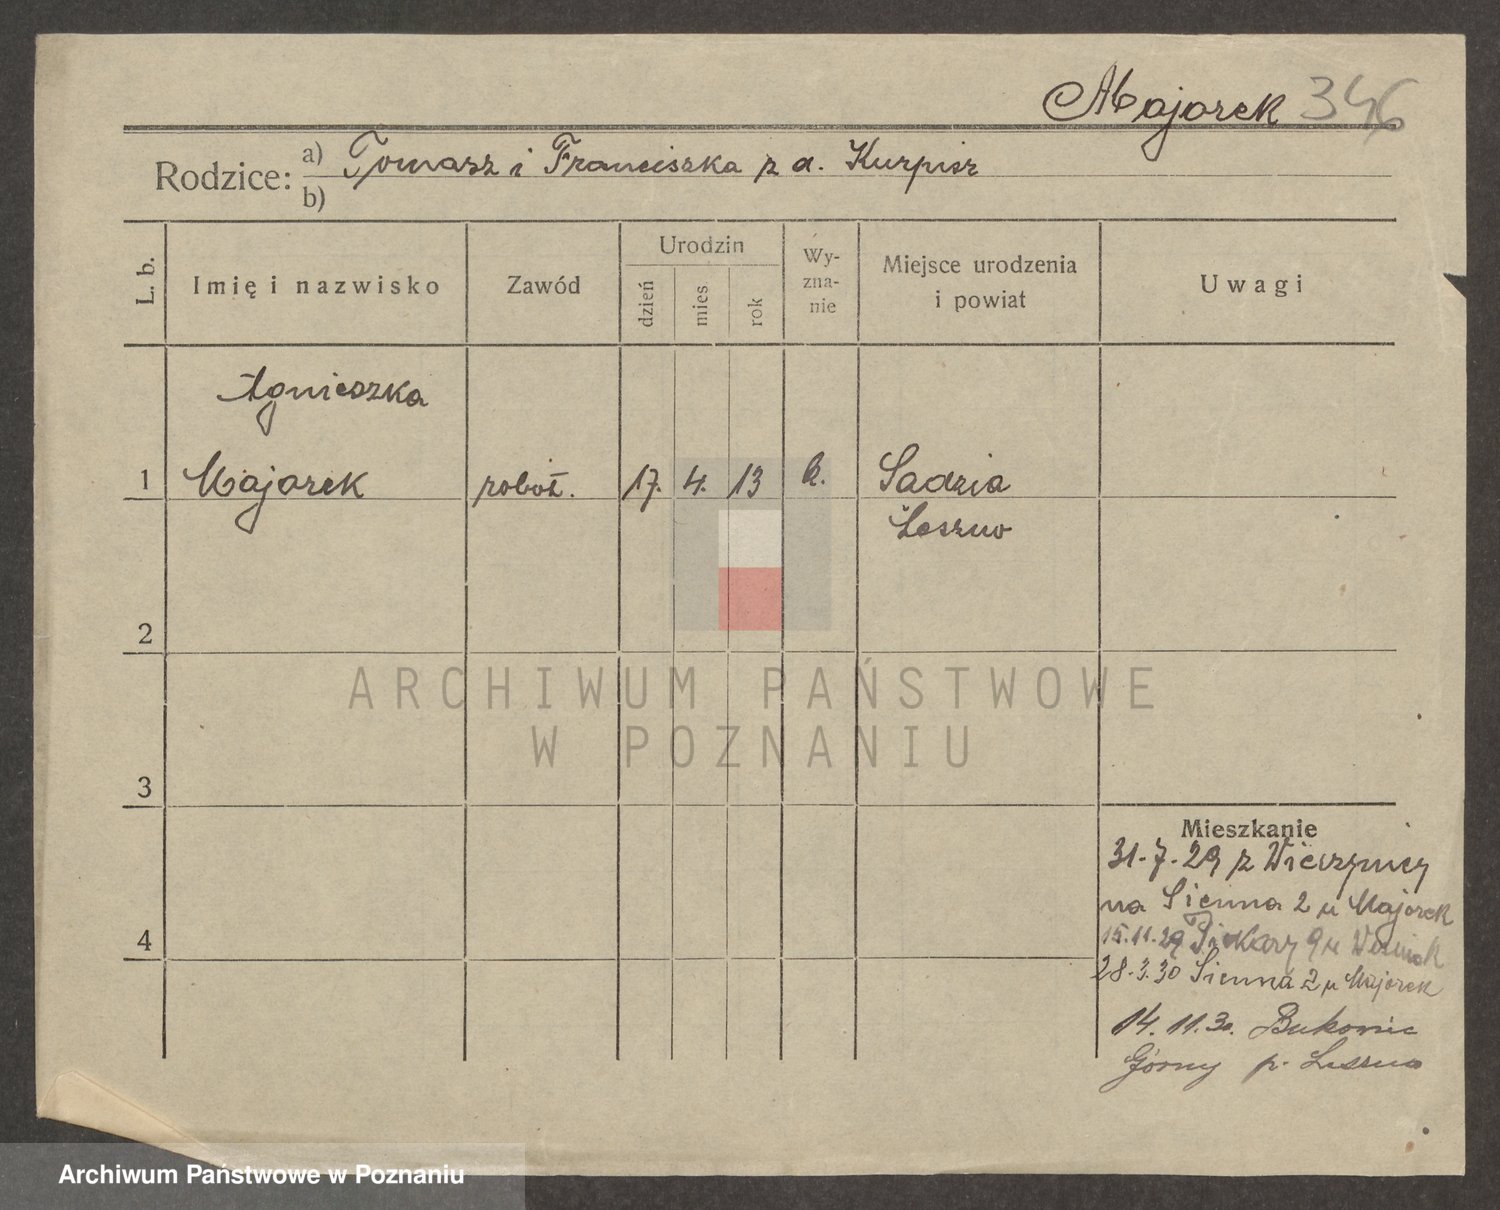 Majorek 346
Rodzice: a) Tomasz i Franciszka z d. Kurpisz
b)
L. b.
Imię i nazwisko
Zawód
Urodzin
dzień
mies.
rok
Wy-
zna-
nie
Miejsce urodzenia
i powiat
Uwagi
Agnieszka
1 Majorek robot. 17. 4. 13 k. Sadzia
Leszno
2
ARCHIWUM PAŃSTWOWE
W POZNANIU
3
Mieszkanie
31.7.29 z
na Sienna 2 u Majorek
4
15.11.29 Piekary 9 u
28.3.30 Sienna 2 u Majorek
14.11.30. Bukowiec
Górny p. Leszno
Archiwum Państwowe w Poznaniu